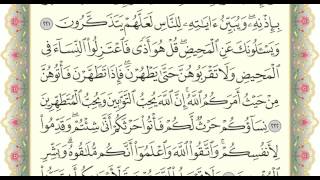 بِإِذْنِهِۦ وَيُبَيِّنُ ءَايَٰتِهِۦ لِلنَّاسِ لَعَلَّهُمْ يَتَذَكَّرُونَ ٢٢١
وَيَسْـَٔلُونَكَ عَنِ ٱلْمَحِيضِ قُلْ هُوَ أَذًى فَٱعْتَزِلُوا۟ ٱلنِّسَآءَ فِى
ٱلْمَحِيضِ وَلَا تَقْرَبُوهُنَّ حَتَّىٰ يَطْهُرْنَ فَإِذَا تَطَهَّرْنَ فَأْتُوهُنَّ
مِنْ حَيْثُ أَمَرَكُمُ ٱللَّهُ إِنَّ ٱللَّهَ يُحِبُّ ٱلتَّوَّٰبِينَ وَيُحِبُّ ٱلْمُتَطَهِّرِينَ
٢٢٢ نِسَآؤُكُمْ حَرْثٌ لَّكُمْ فَأْتُوا۟ حَرْثَكُمْ أَنَّىٰ شِئْتُمْ وَقَدِّمُوا۟
لِأَنفُسِكُمْ وَٱتَّقُوا۟ ٱللَّهَ وَٱعْلَمُوٓا۟ أَنَّكُم مُّلَٰقُوهُ وَبَشِّرِ